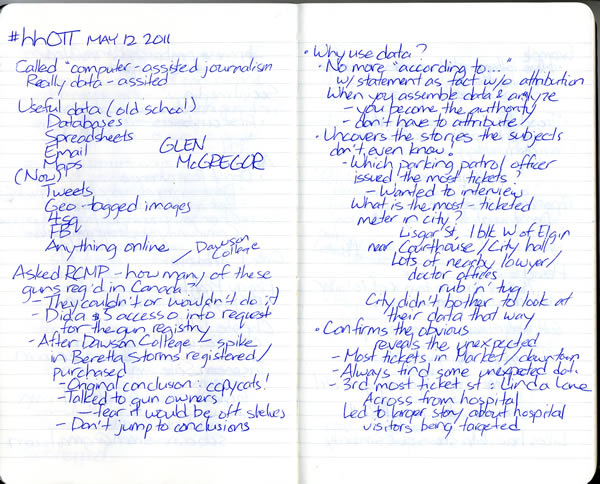 #hhOTT MAY 12 2011
Called "computer-assisted journalism
Really data-assited
Useful data (old school)
Databases
Spreadsheets
Email
Maps
GLEN
McGREGOR
(Now)
Tweets
Geo-tagged images
4sq
FB
Anything online
Dawson
College
Asked RCMP - how many of these
guns reg'd in Canada?
- They couldn't or wouldn't do it
- Did a $5 access to info request
for the gun registry
- After Dawson College - spike
in Beretta Storms registered/
purchased
- Original conclusion: copycats!
- Talked to gun owners!
- fear it would be off shelves
- Don't jump to conclusions
• Why use data?
• No more "according to..."
w/ statement as fact w/o attribution
When you assemble data & analyze
- you become the authority
- don't have to attribute!
• Uncovers the stories the subjects
don't even know.
- Which parking patrol officer
issued the most tickets?
- Wanted to interview
What is the most-ticketed
meter in city?
Lisgar St, 1 blk W of Elgin
near Courthouse/City hall
Lots of nearby lawyer/
doctor offices
rub 'n' tug
City didn't bother to look at
their data that way
• Confirms the obvious
reveals the unexpected
- Most tickets in Market/downtown
- Always find some unexpected data
- 3rd most ticket st: Linda Lane
Across from hospital
Led to larger story about hospital
visitors being targeted